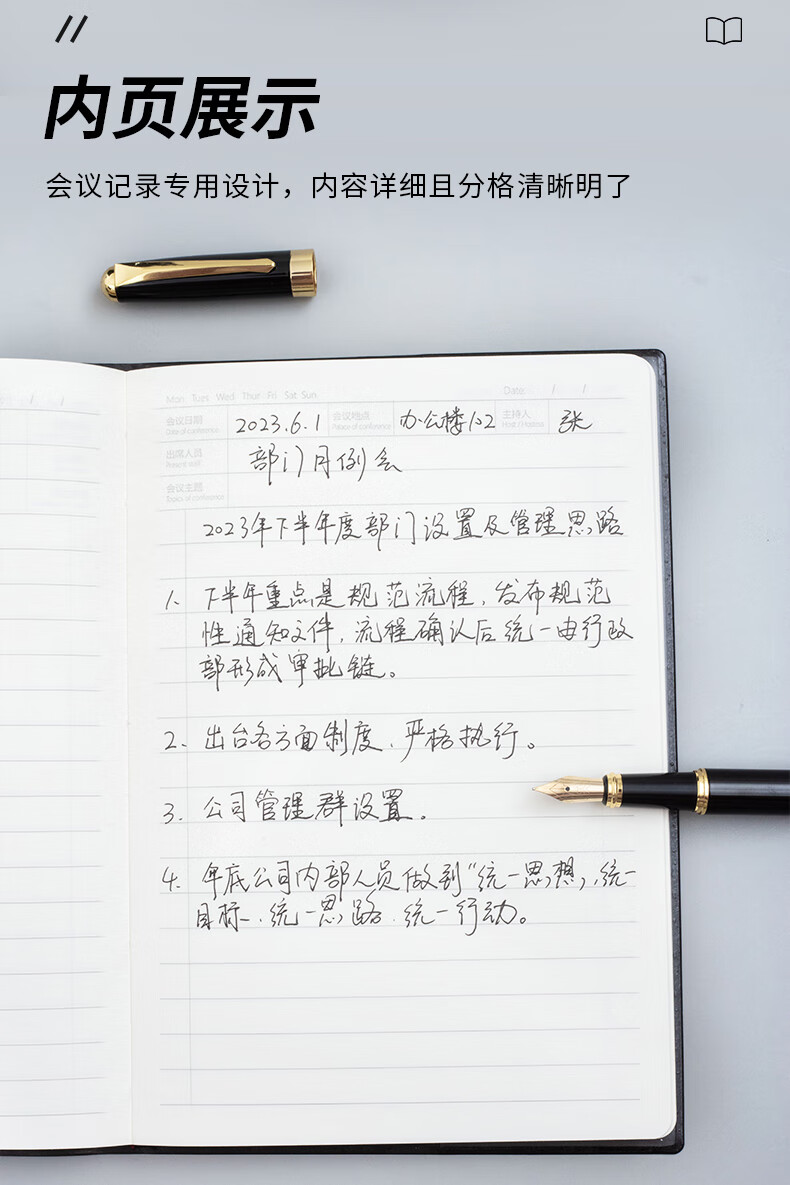 内页展示
会议记录专用设计，内容详细且分格清晰明了
Mon Tues Wed Thur Fri Sat Sun Date: / /
会议日期 2023.6.1 会议地点 办公楼102 主持人 张
Date of conference Palace of conference Host / Hostess
出席人员 部门月例会
Present staff
会议主题
Topics of conference
2023年下半年度部门设置及管理思路
1. 下半年重点是规范流程，发布规范
性通知文件，流程确认后统一由行政
部形成审批链。
2. 出台各方面制度，严格执行。
3. 公司管理群设置。
4. 年底公司内部人员做到“统一思想，统一
目标、统一思路、统一行动。